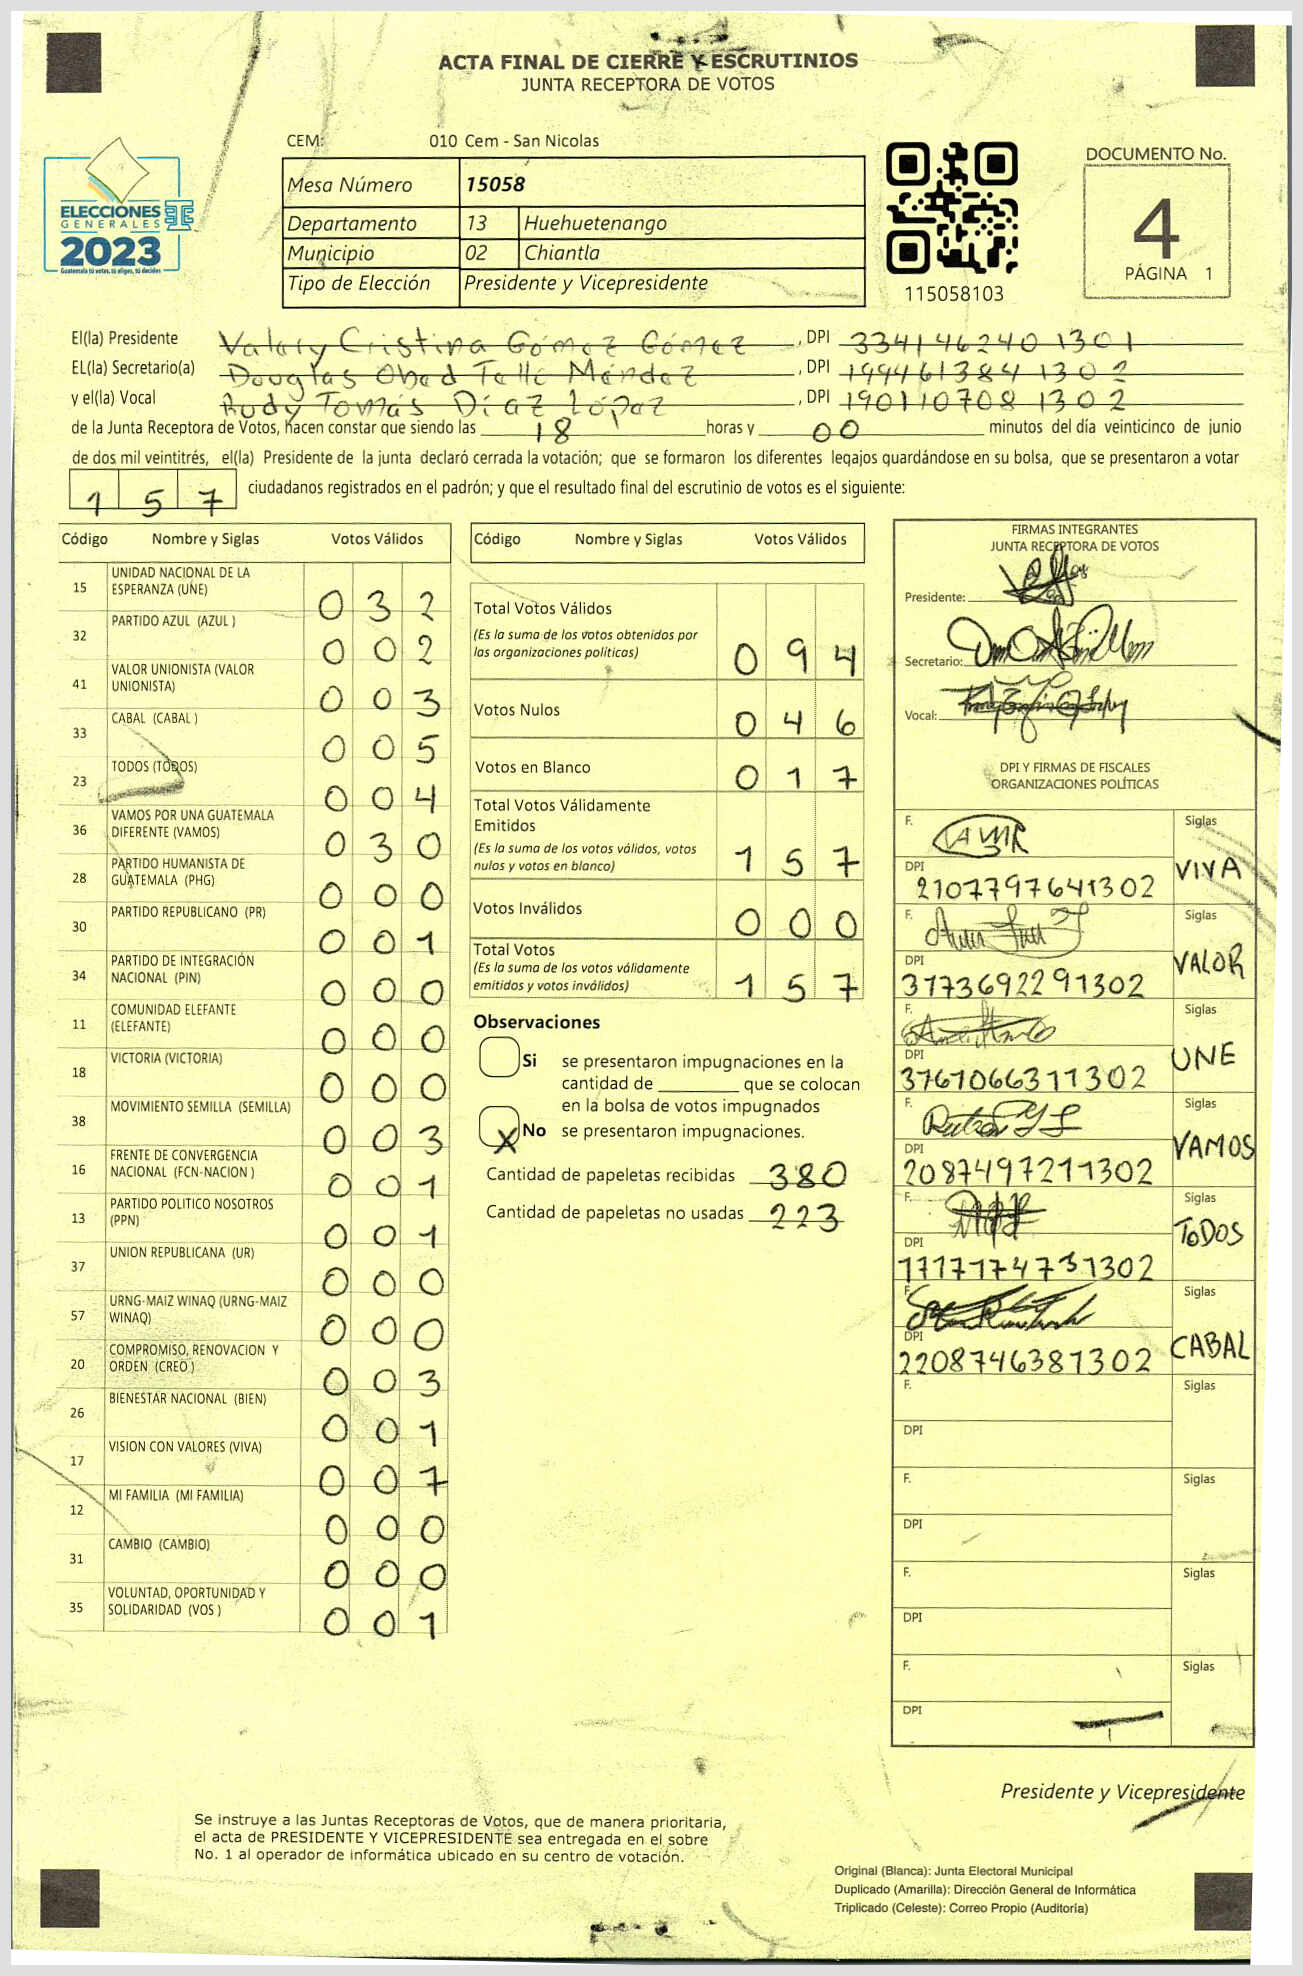 ACTA FINAL DE CIERRE Y ESCRUTINIOS
JUNTA RECEPTORA DE VOTOS
CEM: 010 Cem - San Nicolas
ELECCIONES
GENERALES
2023
Guatemala tú votas, tú eliges, tú decides
Mesa Número 15058
Departamento 13 Huehuetenango
Municipio 02 Chiantla
Tipo de Elección Presidente y Vicepresidente
115058103
DOCUMENTO No.
4
PÁGINA 1
El(la) Presidente Valery Cristina Gómez Gómez, DPI 3341462401301
EL(la) Secretario(a) Douglas Obed Tello Méndez, DPI 1994613841302
y el(la) Vocal Rudy Tomás Díaz López, DPI 1901107081302
de la Junta Receptora de Votos, hacen constar que siendo las 18 horas y 00 minutos del día veinticinco de junio
de dos mil veintitrés, el(la) Presidente de la junta declaró cerrada la votación; que se formaron los diferentes legajos guardándose en su bolsa, que se presentaron a votar
157 ciudadanos registrados en el padrón; y que el resultado final del escrutinio de votos es el siguiente:
Código Nombre y Siglas Votos Válidos
15 UNIDAD NACIONAL DE LA ESPERANZA (UNE) 032
32 PARTIDO AZUL (AZUL ) 002
41 VALOR UNIONISTA (VALOR UNIONISTA) 003
33 CABAL (CABAL ) 005
23 TODOS (TODOS) 004
36 VAMOS POR UNA GUATEMALA DIFERENTE (VAMOS) 030
28 PARTIDO HUMANISTA DE GUATEMALA (PHG) 000
30 PARTIDO REPUBLICANO (PR) 001
34 PARTIDO DE INTEGRACIÓN NACIONAL (PIN) 000
11 COMUNIDAD ELEFANTE (ELEFANTE) 000
18 VICTORIA (VICTORIA) 000
38 MOVIMIENTO SEMILLA (SEMILLA) 003
16 FRENTE DE CONVERGENCIA NACIONAL (FCN-NACION ) 001
13 PARTIDO POLITICO NOSOTROS (PPN) 001
37 UNION REPUBLICANA (UR) 000
57 URNG-MAIZ WINAQ (URNG-MAIZ WINAQ) 000
20 COMPROMISO, RENOVACION Y ORDEN (CREO ) 003
26 BIENESTAR NACIONAL (BIEN) 001
17 VISION CON VALORES (VIVA) 007
12 MI FAMILIA (MI FAMILIA) 000
31 CAMBIO (CAMBIO) 000
35 VOLUNTAD, OPORTUNIDAD Y SOLIDARIDAD (VOS ) 001
Código Nombre y Siglas Votos Válidos
Total Votos Válidos
(Es la suma de los votos obtenidos por
las organizaciones políticas) 094
Votos Nulos 046
Votos en Blanco 017
Total Votos Válidamente
Emitidos
(Es la suma de los votos válidos, votos
nulos y votos en blanco) 157
Votos Inválidos 000
Total Votos
(Es la suma de los votos válidamente
emitidos y votos inválidos) 157
Observaciones
Si se presentaron impugnaciones en la
cantidad de ________ que se colocan
en la bolsa de votos impugnados
X No se presentaron impugnaciones.
Cantidad de papeletas recibidas 380
Cantidad de papeletas no usadas 223
FIRMAS INTEGRANTES
JUNTA RECEPTORA DE VOTOS
Presidente:
Secretario:
Vocal:
DPI Y FIRMAS DE FISCALES
ORGANIZACIONES POLÍTICAS
F. Siglas
DPI 2107797641302 VIVA
F. Siglas
DPI 3173692291302 VALOR
F. Siglas
DPI 3761066311302 UNE
F. Siglas
DPI 2087497211302 VAMOS
F. Siglas
DPI 1717174731302 TODOS
F. Siglas
DPI 2208746381302 CABAL
F. Siglas
DPI
F. Siglas
DPI
F. Siglas
DPI
F. Siglas
DPI
Presidente y Vicepresidente
Se instruye a las Juntas Receptoras de Votos, que de manera prioritaria,
el acta de PRESIDENTE Y VICEPRESIDENTE sea entregada en el sobre
No. 1 al operador de informática ubicado en su centro de votación.
Original (Blanca): Junta Electoral Municipal
Duplicado (Amarilla): Dirección General de Informática
Triplicado (Celeste): Correo Propio (Auditoría)